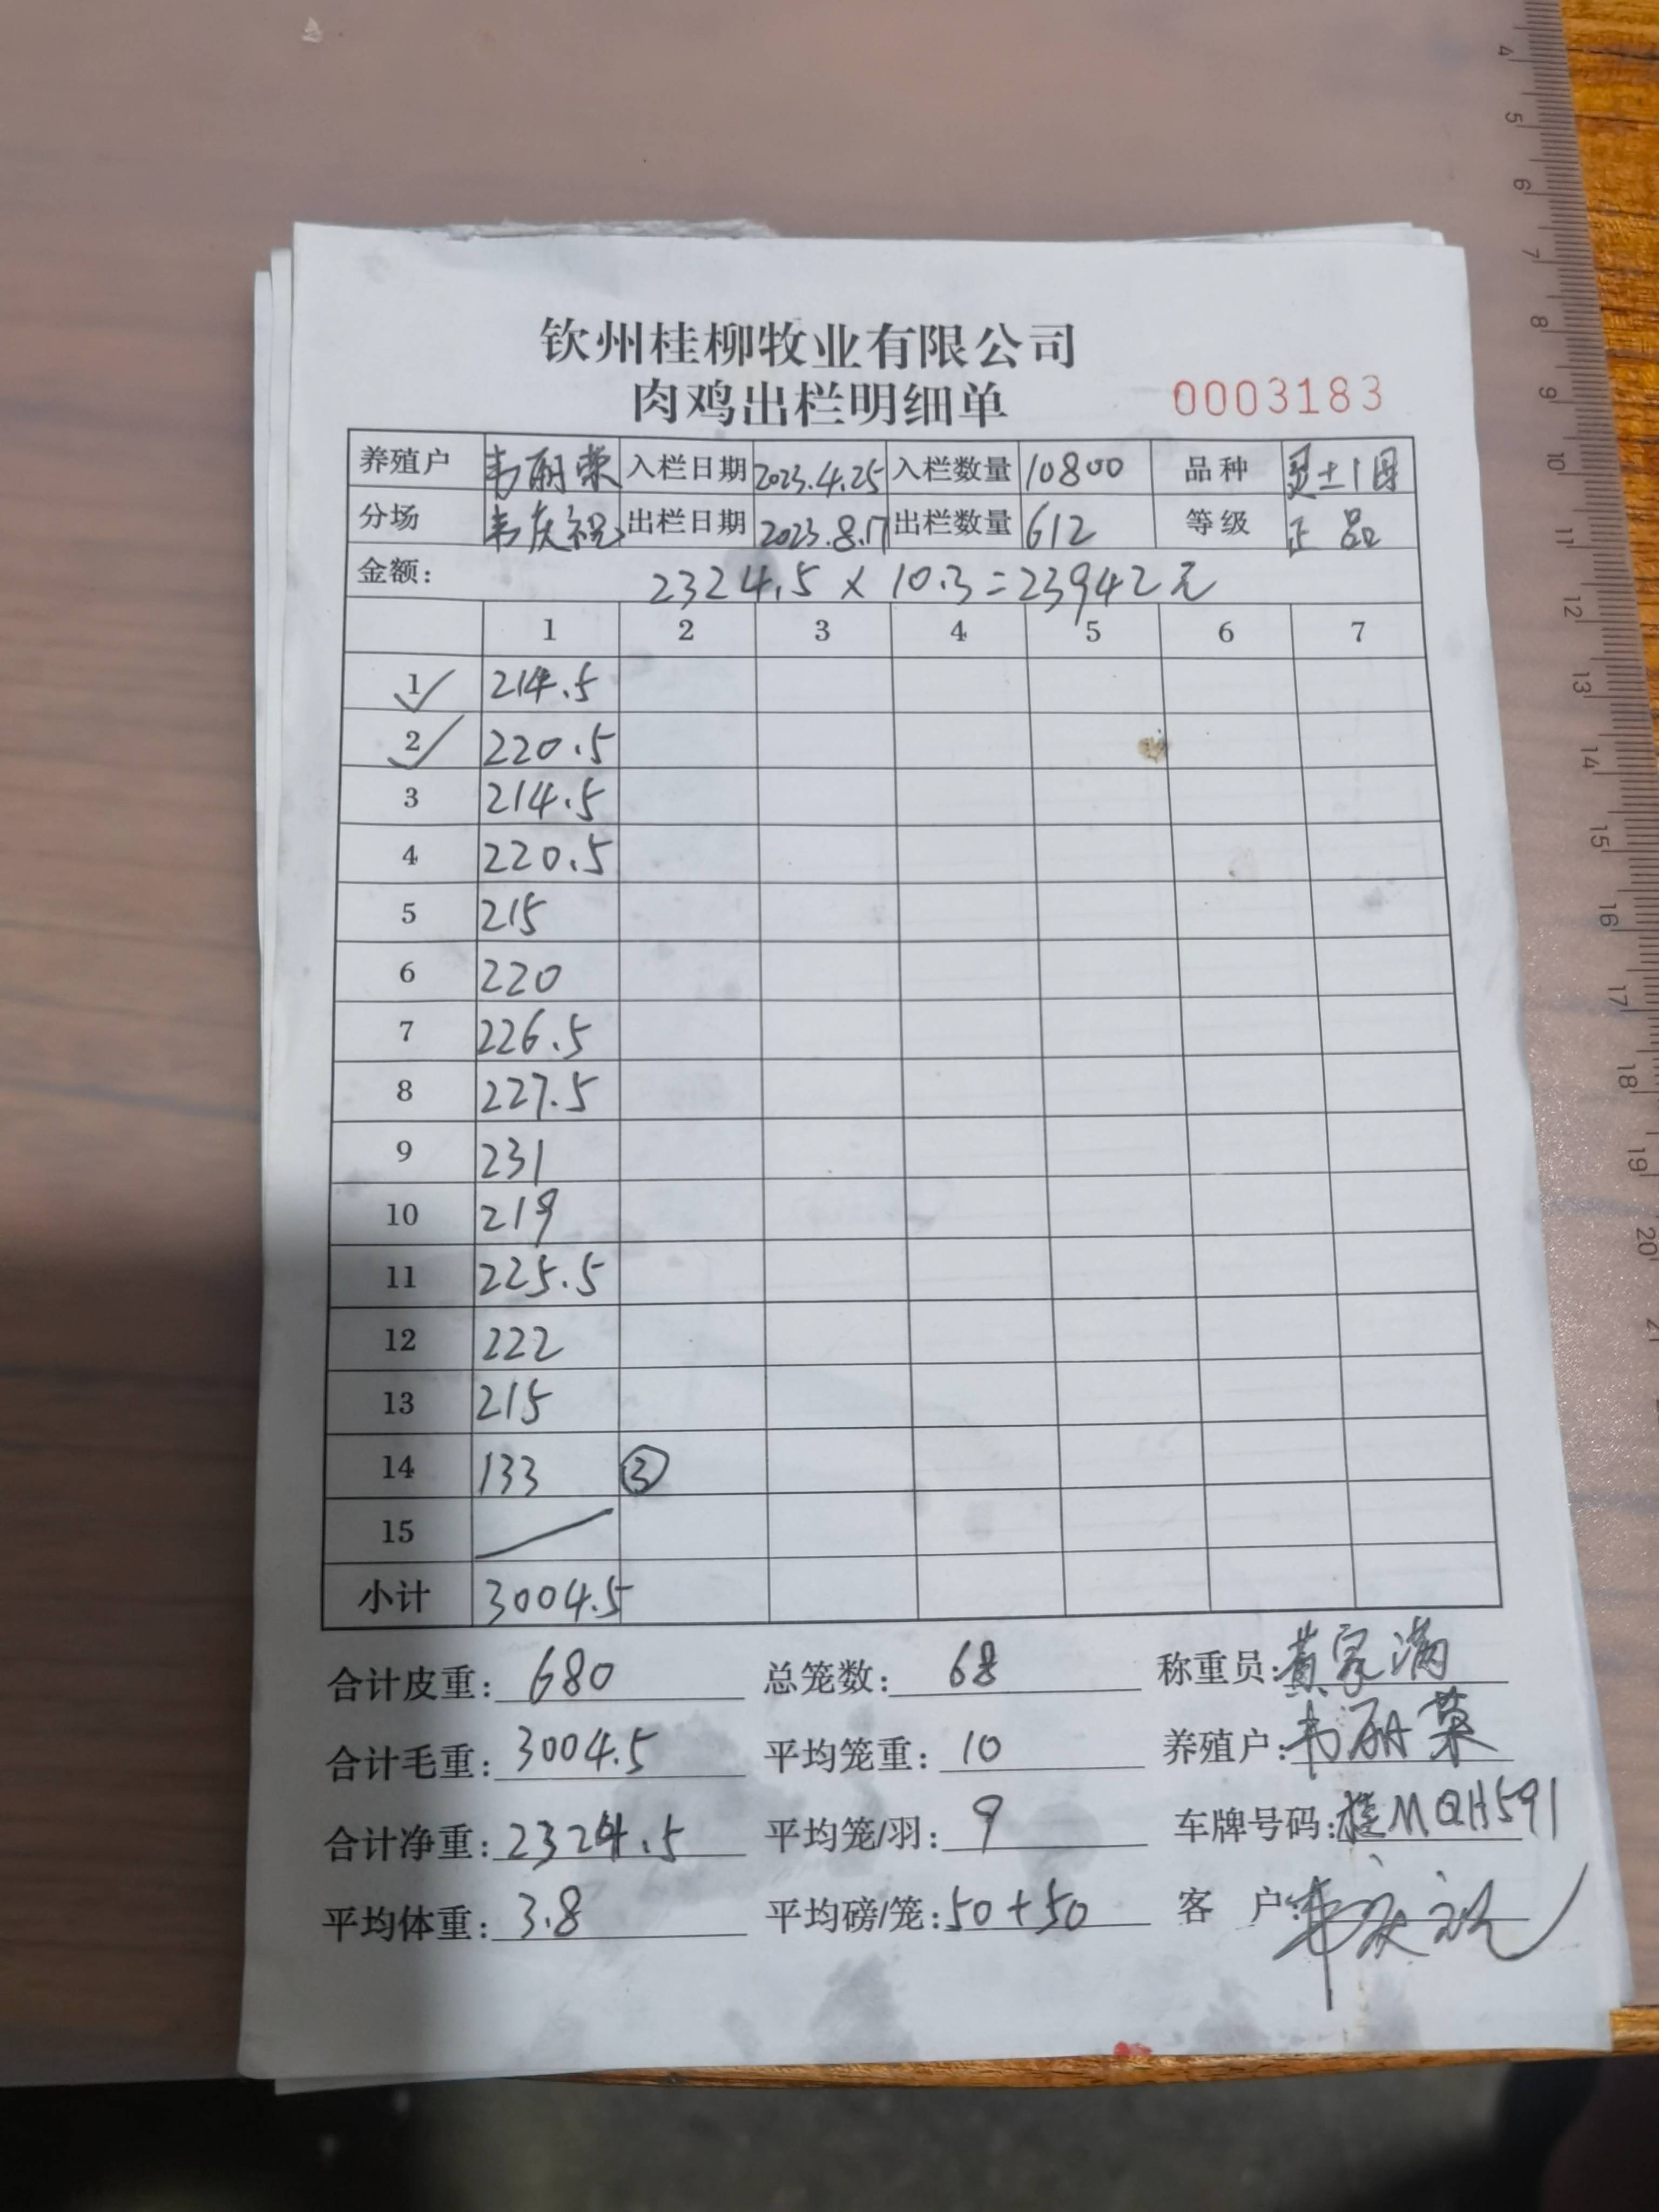 钦州桂柳牧业有限公司
肉鸡出栏明细单 0003183
养殖户 韦丽荣 入栏日期 2023.4.25 入栏数量 10800 品种 灵土1母
分场 韦庆祝 出栏日期 2023.8.17 出栏数量 612 等级 正品
金额: 2324.5 × 10.3=23942元
1 2 3 4 5 6 7
1 214.5
2 220.5
3 214.5
4 220.5
5 215
6 220
7 226.5
8 227.5
9 231
10 219
11 225.5
12 222
13 215
14 133 ③
15
小计 3004.5
合计皮重: 680 总笼数: 68 称重员: 黄家满
合计毛重: 3004.5 平均笼重: 10 养殖户: 韦丽荣
合计净重: 2324.5 平均笼/羽: 9 车牌号码: 桂MQH591
平均体重: 3.8 平均磅/笼: 50+50 客 户: 韦庆祝
4
5
6
7
8
9
10
11
12
13
14
15
16
17
18
19
20